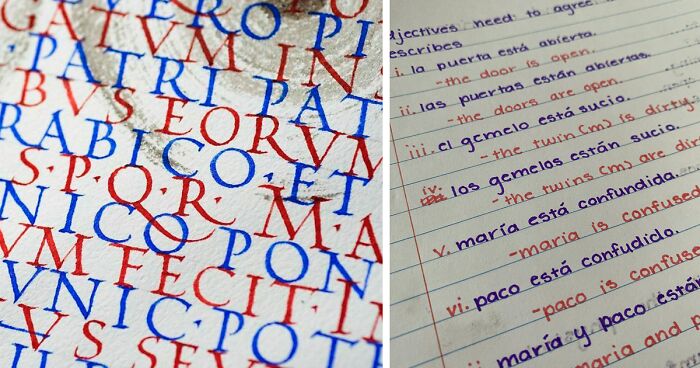 VERO PI
GATVM INS
· PATRI PAT
BVS EORVM
RABICO · ET
S · P · Q · R · M · A
NICO PON
VM FECIT · I
VNIC · POT
VS SEV
djectives need to agree
escribes
i. la puerta está abierta.
-the door is open.
ii. las puertas están abiertas.
-the doors are open.
iii. el gemelo está sucio.
-the twin (m) is dirty
iv. los gemelos están sucio.
-the twins (m) are dir
v. maría está confundida.
-maria is confused
vi. paco está confudido.
-paco is confuse
maría y paco están
maria and p